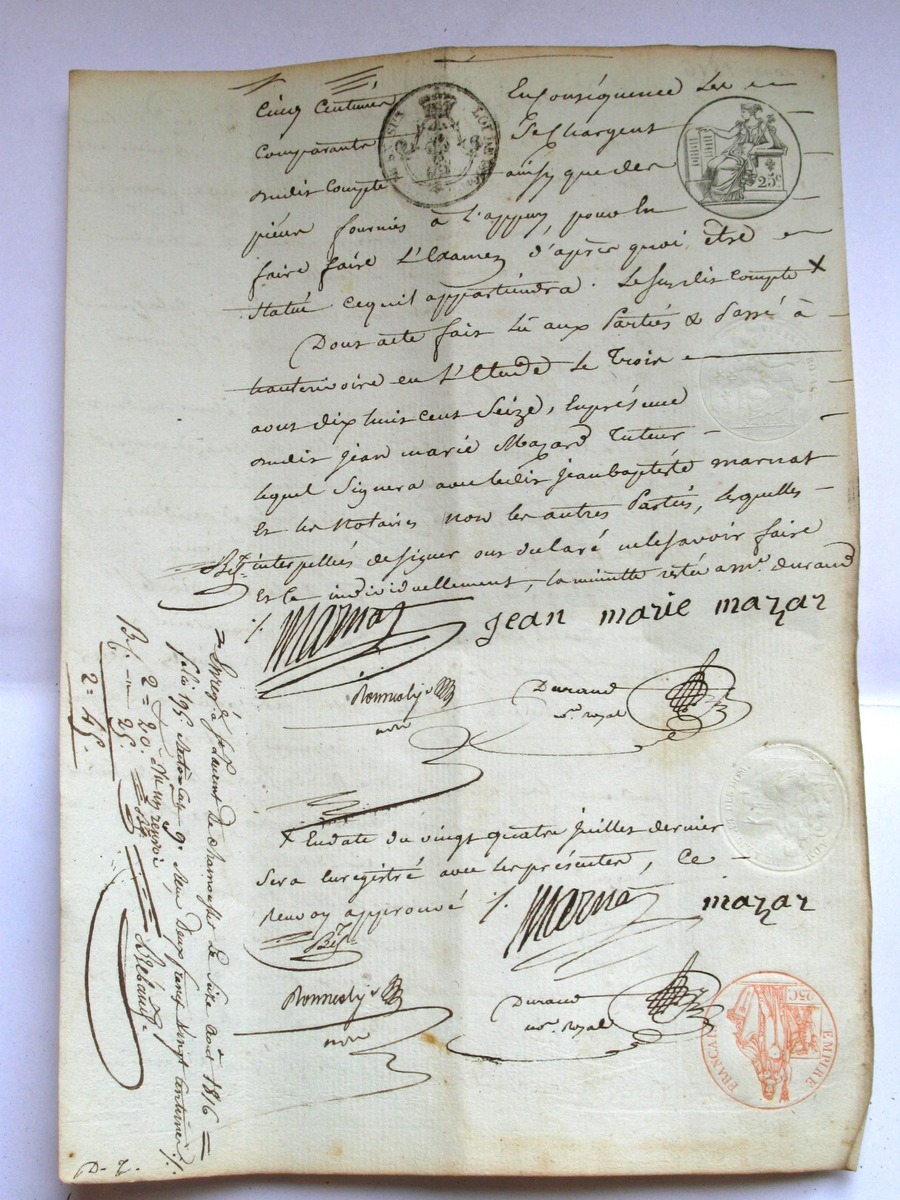 Cinq Centimes Enconséquence Les
Comparants Se Chargent
dudit Compte ainsy que des
pièces fournies à l'appuy, pour en
faire faire L'Examen d'après quoi être
Statué cequil appartiendra. Lesusdit Compte X
Dont acte fait Lû aux Parties & Passé à
hauterivoire en L'Etude Le Trois
aout dix huit cent Seize, Enprésence
dudit Jean marie Mazard Tuteur
lequel Signera avec ledit Jeanbaptiste marnat
Et les Notaires non les autres Parties, lesquelles
interpellées designer ont déclaré nelesavoir faire
Et ce individuellement, la minutte restée a Me. durand
Marnat Jean marie mazar
Durand
no. royal
X Endate du vingt quatre Juillet dernier
Sera Enregistré avec les présentes, Ce
renvoy approuvé
Marnat mazar
Durand
no. royal
Enregé. à St. Laurent de chamousset Le Seize Août 1816
folio 195 recto Case 9. Reçu deux francs vingt centimes
2 = 20.
25.
2 = 45.
25c
25C
EMPIRE FRANCAIS
D. T.